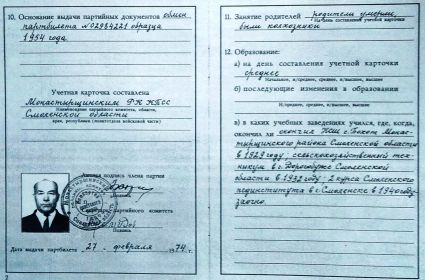 10. Основание выдачи партийных документов обмен
партбилета №02954221 образца
1954 года
Учетная карточка составлена
Монастырщинским РК КПСС
Наименование партийного комитета, области,
Смоленской области
края, республики (политотдела войсковой части)
Личная подпись члена партии
партийного комитета
Подпись
Дата выдачи партбилета „27“ февраля 1974 г.
2
11. Занятие родителей родители умерли,
На день составления учетной карточки
были колхозники
12. Образование:
а) на день составления учетной карточки
среднее
Начальное, н/среднее, среднее, н/высшее, высшее
б) последующие изменения в образовании
Н/среднее, среднее, н/высшее, высшее
в) в каких учебных заведениях учился, где, когда,
окончил ли окончил в г. Монас-
тырщинского района Смоленской области
в 1929 году, сельскохозяйственный тех-
никум в г. Дорогобуж Смоленской
области в 1932 году. 2 курса Смоленского
пединститута в г. Смоленске в 1940 году
заочно.